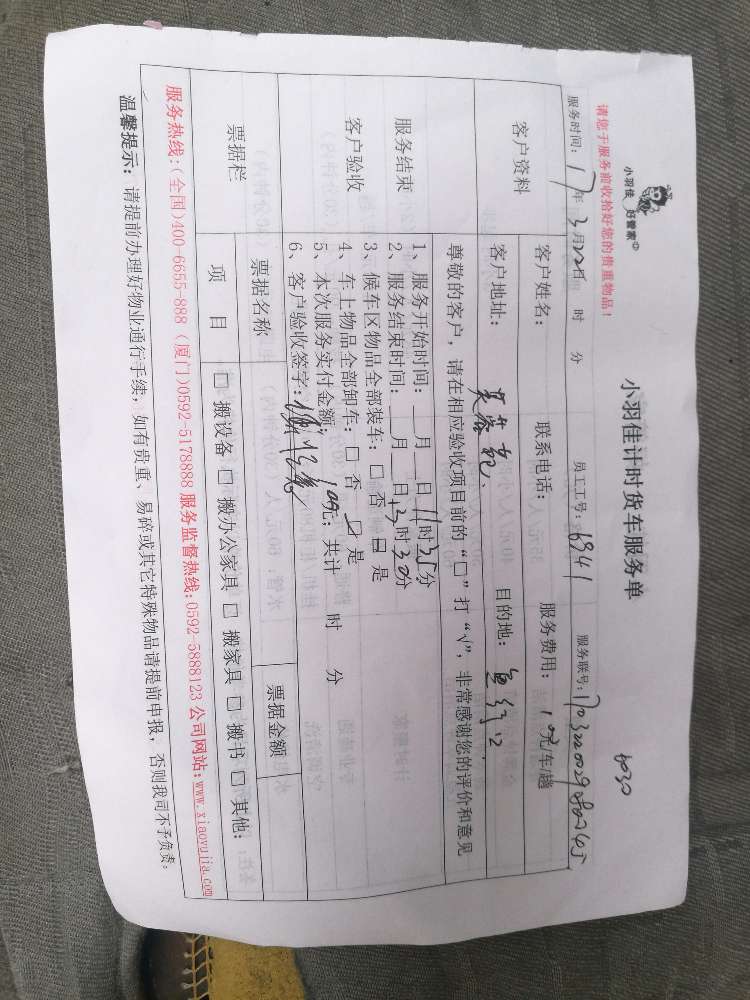 小羽佳 好管家
小羽佳计时货车服务单
6030
请您于服务前收拾好您的贵重物品！
服务时间：17年3月22日 时 分 员工工号：6941 服务联号：
客户资料
客户姓名： 联系电话： 服务费用： 元/车趟
客户地址： 目的地：
尊敬的客户，请在相应验收项目前的“□”打“√”，非常感谢您的评价和意见
服务结束
客户验收
1、服务开始时间：__月__日11时35分
2、服务结束时间：__月__日13时30分
3、候车区物品全部装车：□ 否 □ 是
4、车上物品全部卸车：□ 否 □ 是
5、本次服务实付金额：100元；共计 时 分
6、客户验收签字：
票据栏
票据名称 票据金额
项 目 □ 搬设备 □ 搬办公家具 □ 搬家具 □ 搬书 □ 其他：
服务热线：(全国)400-6655-888 (厦门)0592-5178888 服务监督热线:0592-5888123 公司网站:www.xiaoyujia.com
温馨提示：请提前办理好物业通行手续，如有贵重、易碎或其它特殊物品请提前申报，否则我司不予负责。